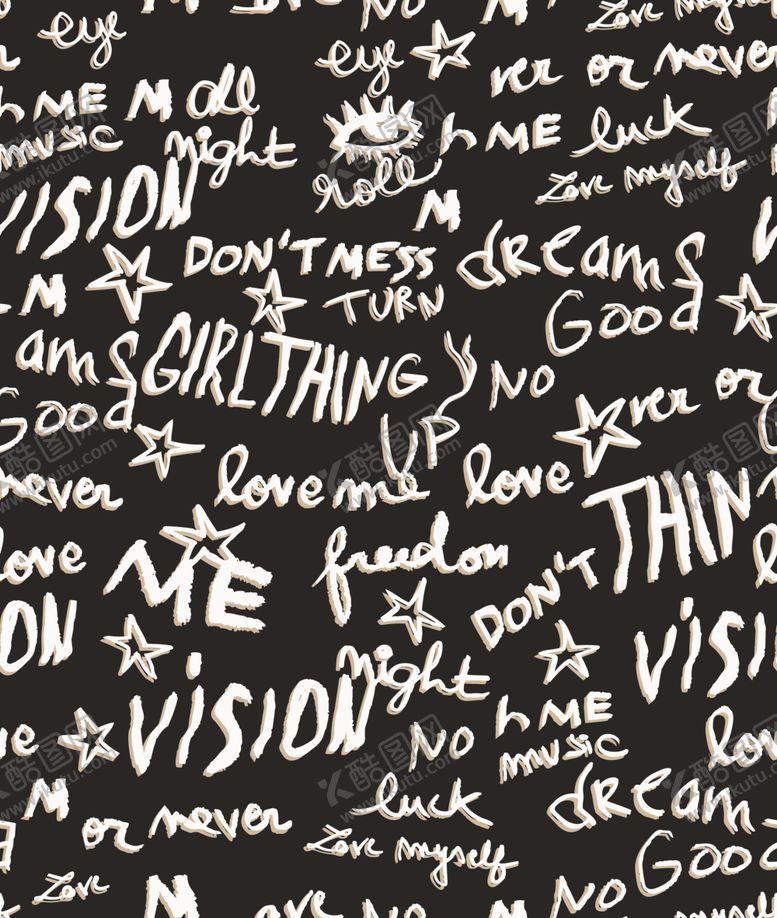 eye
NO
M
Love Myself
eye
ver or never
h ME M all
music night
roll
h ME luck
Love myself
M
VISION
DON'T MESS
dreams
M
TURN
Good
ams
GIRL THING
NO
ver or
Good
UP
never
love me love
THIN
love
ME
freedom
DON'T
ON
night
VISION
VISI
h ME
ve
NO
music
lov
M
luck
dream
or never
Love myself
Good
Love
M
ove
NO
M
NO